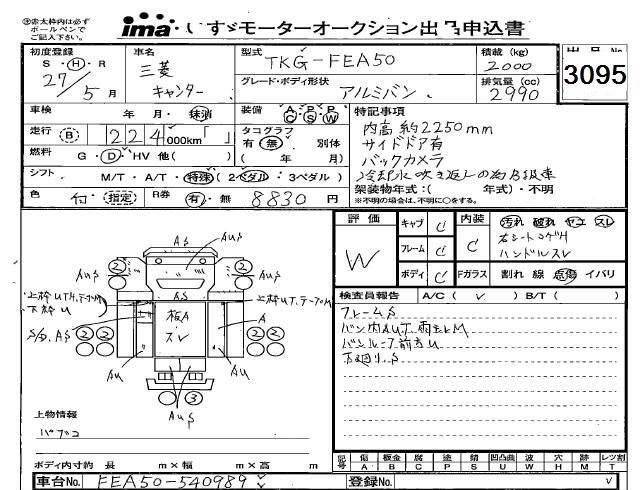 ㊟赤太枠内は必ず
ボールペンで
ご記入下さい。
ima・いすゞモーターオークション出品申込書
初度登録 S・H・R 27 5月
車名 三菱 キャンター
型式 TKG-FEA50
積載 (kg) 2000
グレード・ボディ形状 アルミバン
排気量 (cc) 2990
出品No. 3095
車検 年 月・抹消
装備 A/C P/S P/W
特記事項
走行 B 224,000km
タコグラフ 有 無 別体 ( 年 月)
内高約2250mm
サイドドア有
バックカメラ
冷却水吹き返しの為B級車
燃料 G・D・HV 他( )
シフト M/T・A/T・特殊(2ペダル・3ペダル)
架装物年式:( 年式)・不明
※不明の場合は、不明に〇をする。
色 付・指定 R券 有・無 8830円
評価 W
キャブ C
フレーム C
ボディ C
内装 C
汚れ 破れ ヤニ スレ
右シートコゲH
ハンドルスレ
Fガラス 割れ 線 点傷 イバリ
検査員報告 A/C ( ✓ ) B/T ( )
フレームS
バン内AUT.雨モレM
バンルーフ前方U
下廻り.S
AS
AUS
2
2
AUS
AUS
上枠UT.H.テープM
下枠U
AS
上枠UT.テープM
S/D.AS
板A
スレ
A
2 2
2 2
AU
AU
3
AUS
上物情報
パブコ
ボディ内寸約 長 m×幅 m×高 m
記号 傷A 板金B 腐C 塗P 錆S 凹凸曲U 波W 穴H 跡M レツ割T
車台No. FEA50-540989
登録No.